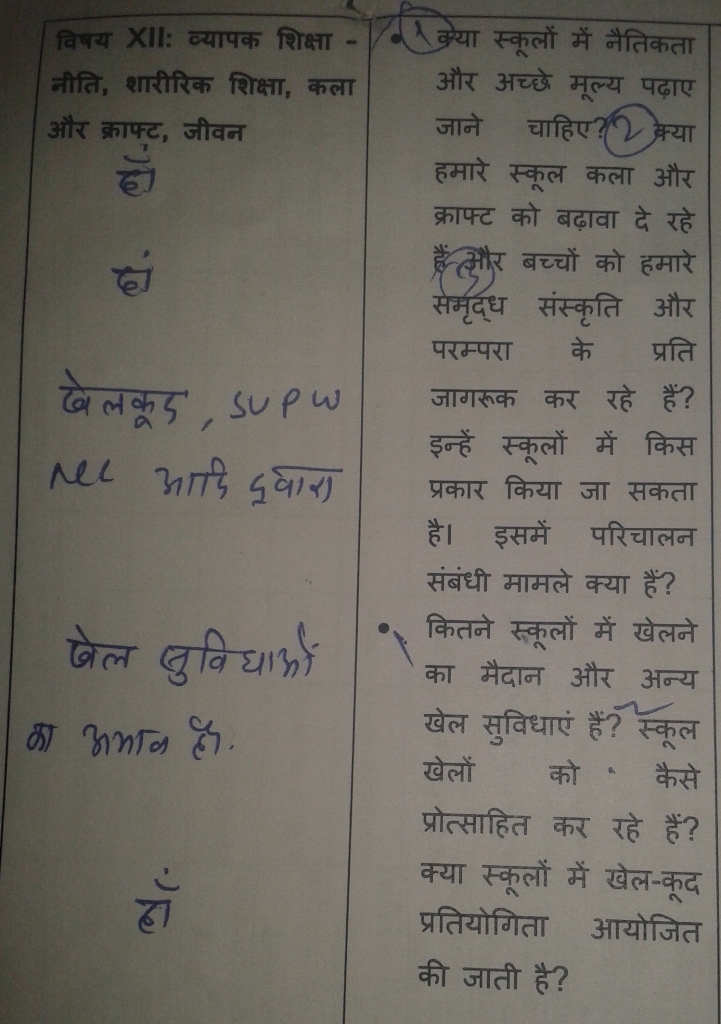 विषय XII: व्यापक शिक्षा -
नीति, शारीरिक शिक्षा, कला
और क्राफ्ट, जीवन
हाँ
हां
खेलकूद, SUPW
NCC आदि द्वारा
खेल सुविधाओं
का अभाव है।
हाँ
1 क्या स्कूलों में नैतिकता
और अच्छे मूल्य पढ़ाए
जाने चाहिए? 2 क्या
हमारे स्कूल कला और
क्राफ्ट को बढ़ावा दे रहे
हैं और बच्चों को हमारे
समृद्ध संस्कृति और
परम्परा के प्रति
जागरूक कर रहे हैं?
इन्हें स्कूलों में किस
प्रकार किया जा सकता
है। इसमें परिचालन
संबंधी मामले क्या हैं?
कितने स्कूलों में खेलने
का मैदान और अन्य
खेल सुविधाएं हैं? 2 स्कूल
खेलों को कैसे
प्रोत्साहित कर रहे हैं?
क्या स्कूलों में खेल-कूद
प्रतियोगिता आयोजित
की जाती है?